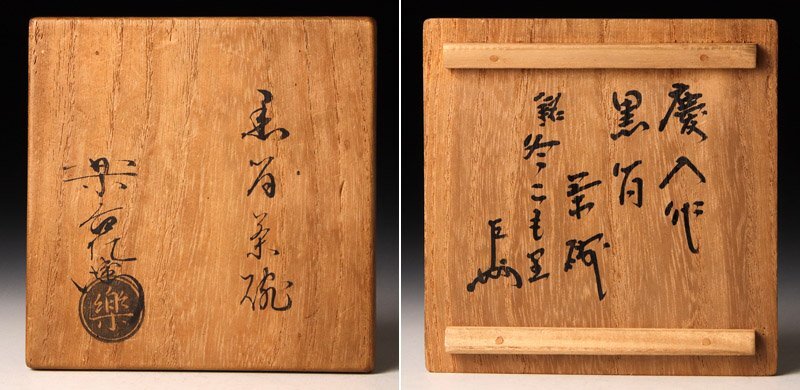 黒筒茶碗
樂
慶入作
黒筒
茶碗
銘 冬こも里